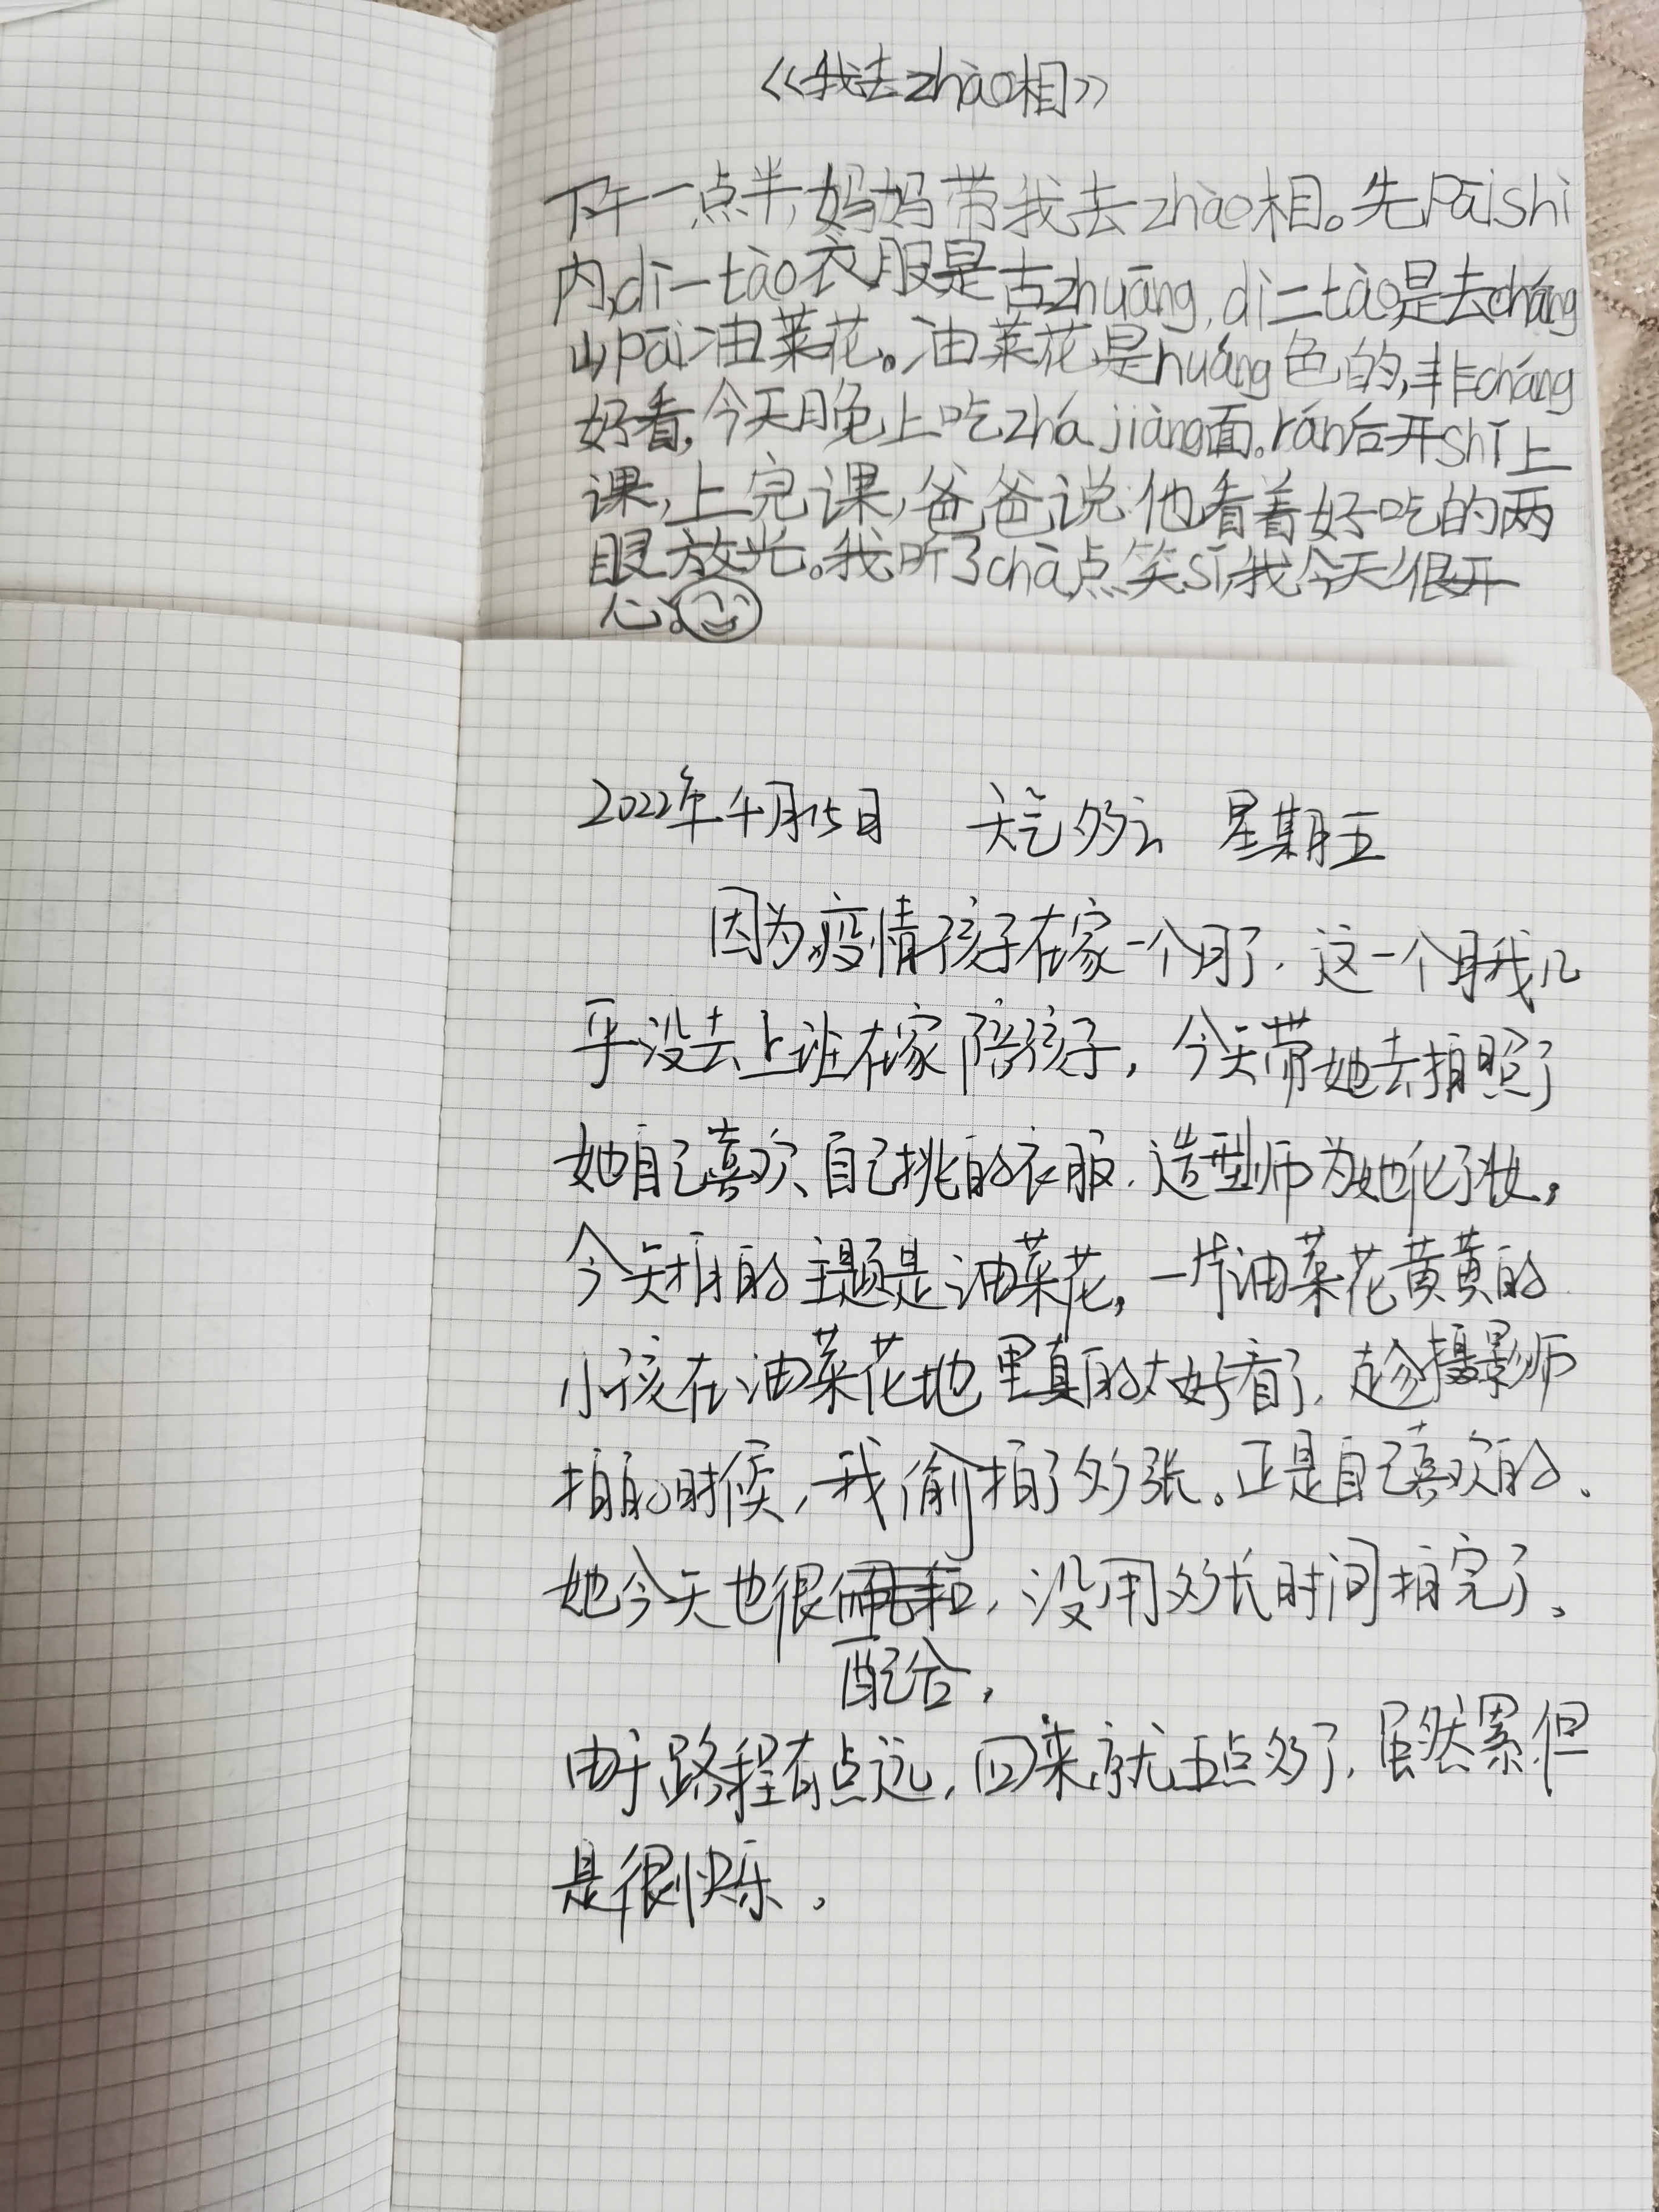 《我去zhào相》
下午一点半,妈妈带我去zhào相。先Pāishì
内,dì一tào衣服是古zhuāng,dì二tào是去cháng
山pāi油菜花。油菜花是huáng色的,非cháng
好看,今天晚上吃zhá jiàng面。rán后开shǐ上
课,上完课,爸爸说他看着好吃的两
眼放光。我听了chà点笑sǐ,我今天很开
心。
2022年4月15日 天气多云 星期五
因为疫情孩子在家一个月了.这一个月我几
乎没去上班在家陪孩子,今天带她去拍照了
她自己喜欢、自己挑的衣服.造型师为她化了妆,
今天拍的主题是油菜花,一片油菜花黄黄的
小孩在油菜花地里真的太好看了,趁摄影师
拍的时候,我偷拍了多张。正是自己喜欢的、
她今天也很,没用多长时间拍完了、
配合,
由于路程有点远,回来就五点多了,虽然累但
是很快乐,